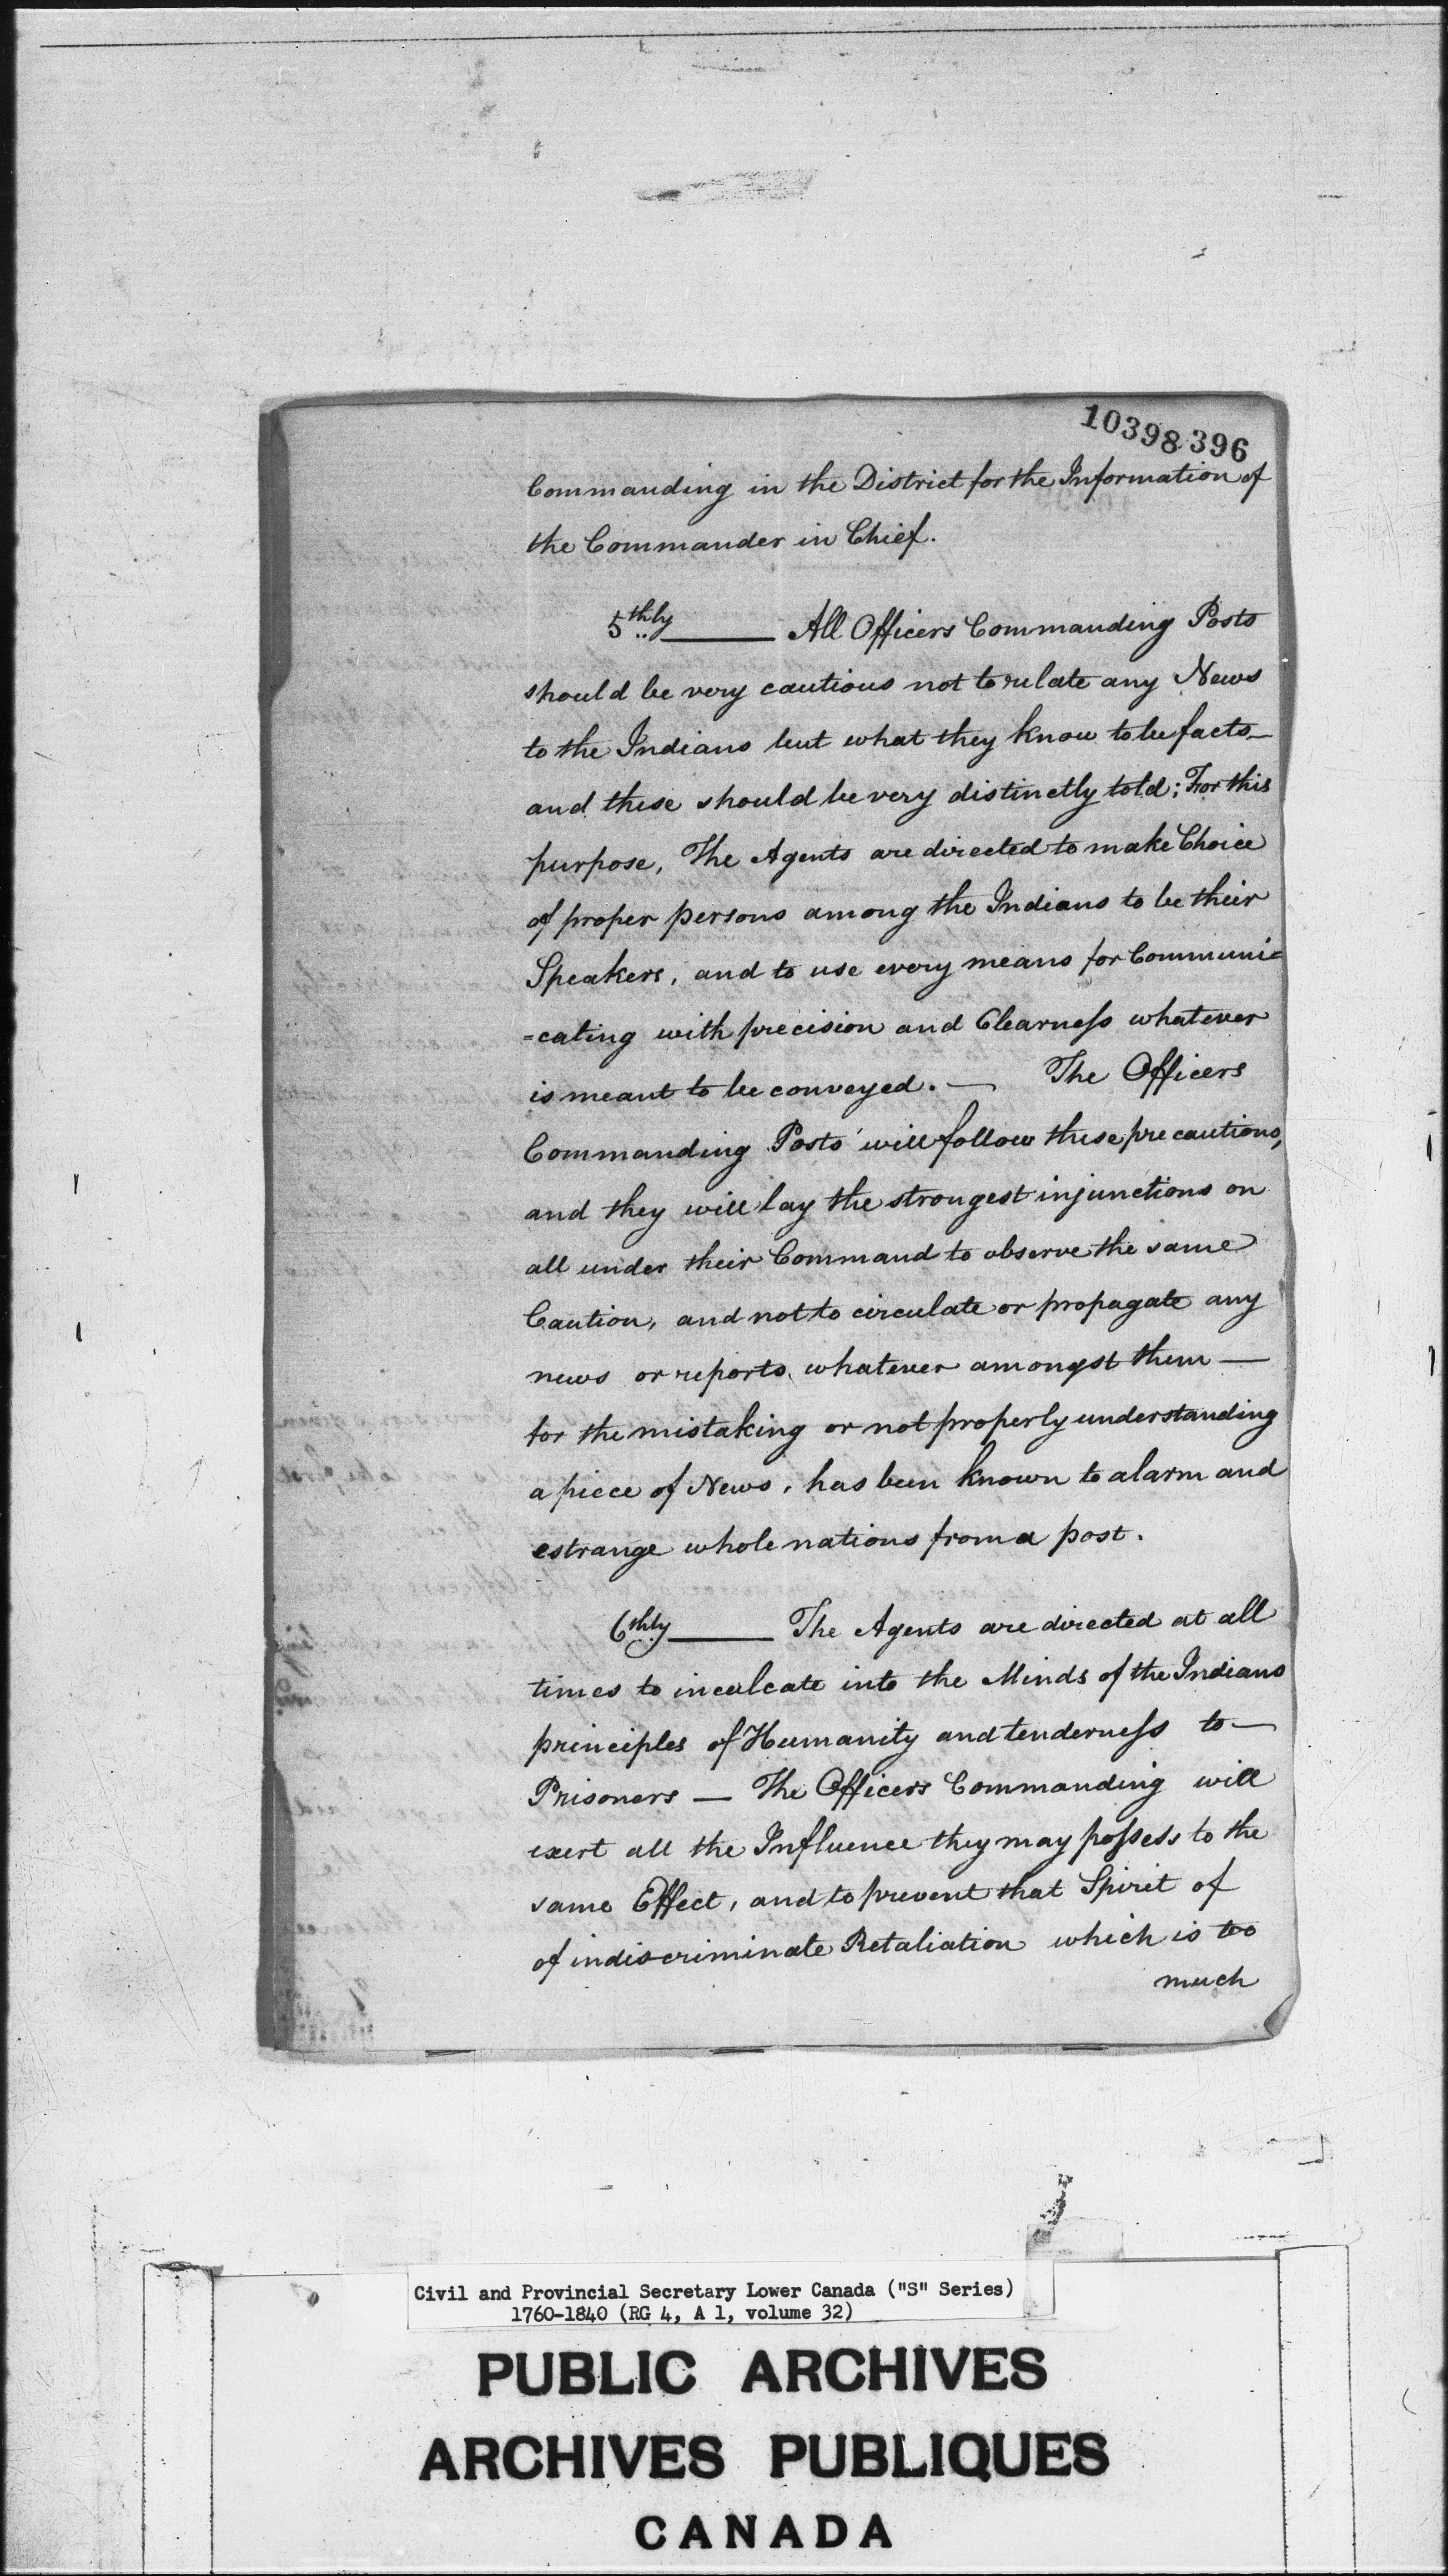 10398 396
Commanding in the District for the Information of
the Commander in Chief.
5thly —— All Officers Commanding Posts
should be very cautious not to relate any News
to the Indians but what they know to be facts —
and these should be very distinctly told; For this
purpose, The Agents are directed to make Choice
of proper persons among the Indians to be their
Speakers, and to use every means for Communi=
=cating with precision and Clearness whatever
is meant to be conveyed. — The Officers
Commanding Posts will follow these precautions,
and they will lay the strongest injunctions on
all under their Command to observe the same
Caution, and not to circulate or propagate any
news or reports whatever amongst them —
for the mistaking or not properly understanding
a piece of News, has been known to alarm and
estrange whole nations from a post.
6thly —— The Agents are directed at all
times to inculcate into the Minds of the Indians
principles of Humanity and tenderness to —
Prisoners — The Officers Commanding will
exert all the Influence they may possess to the
same Effect, and to prevent that Spirit of
of indiscriminate Retaliation which is too
much
Civil and Provincial Secretary Lower Canada ("S" Series)
1760-1840 (RG 4, A 1, volume 32)
PUBLIC ARCHIVES
ARCHIVES PUBLIQUES
CANADA